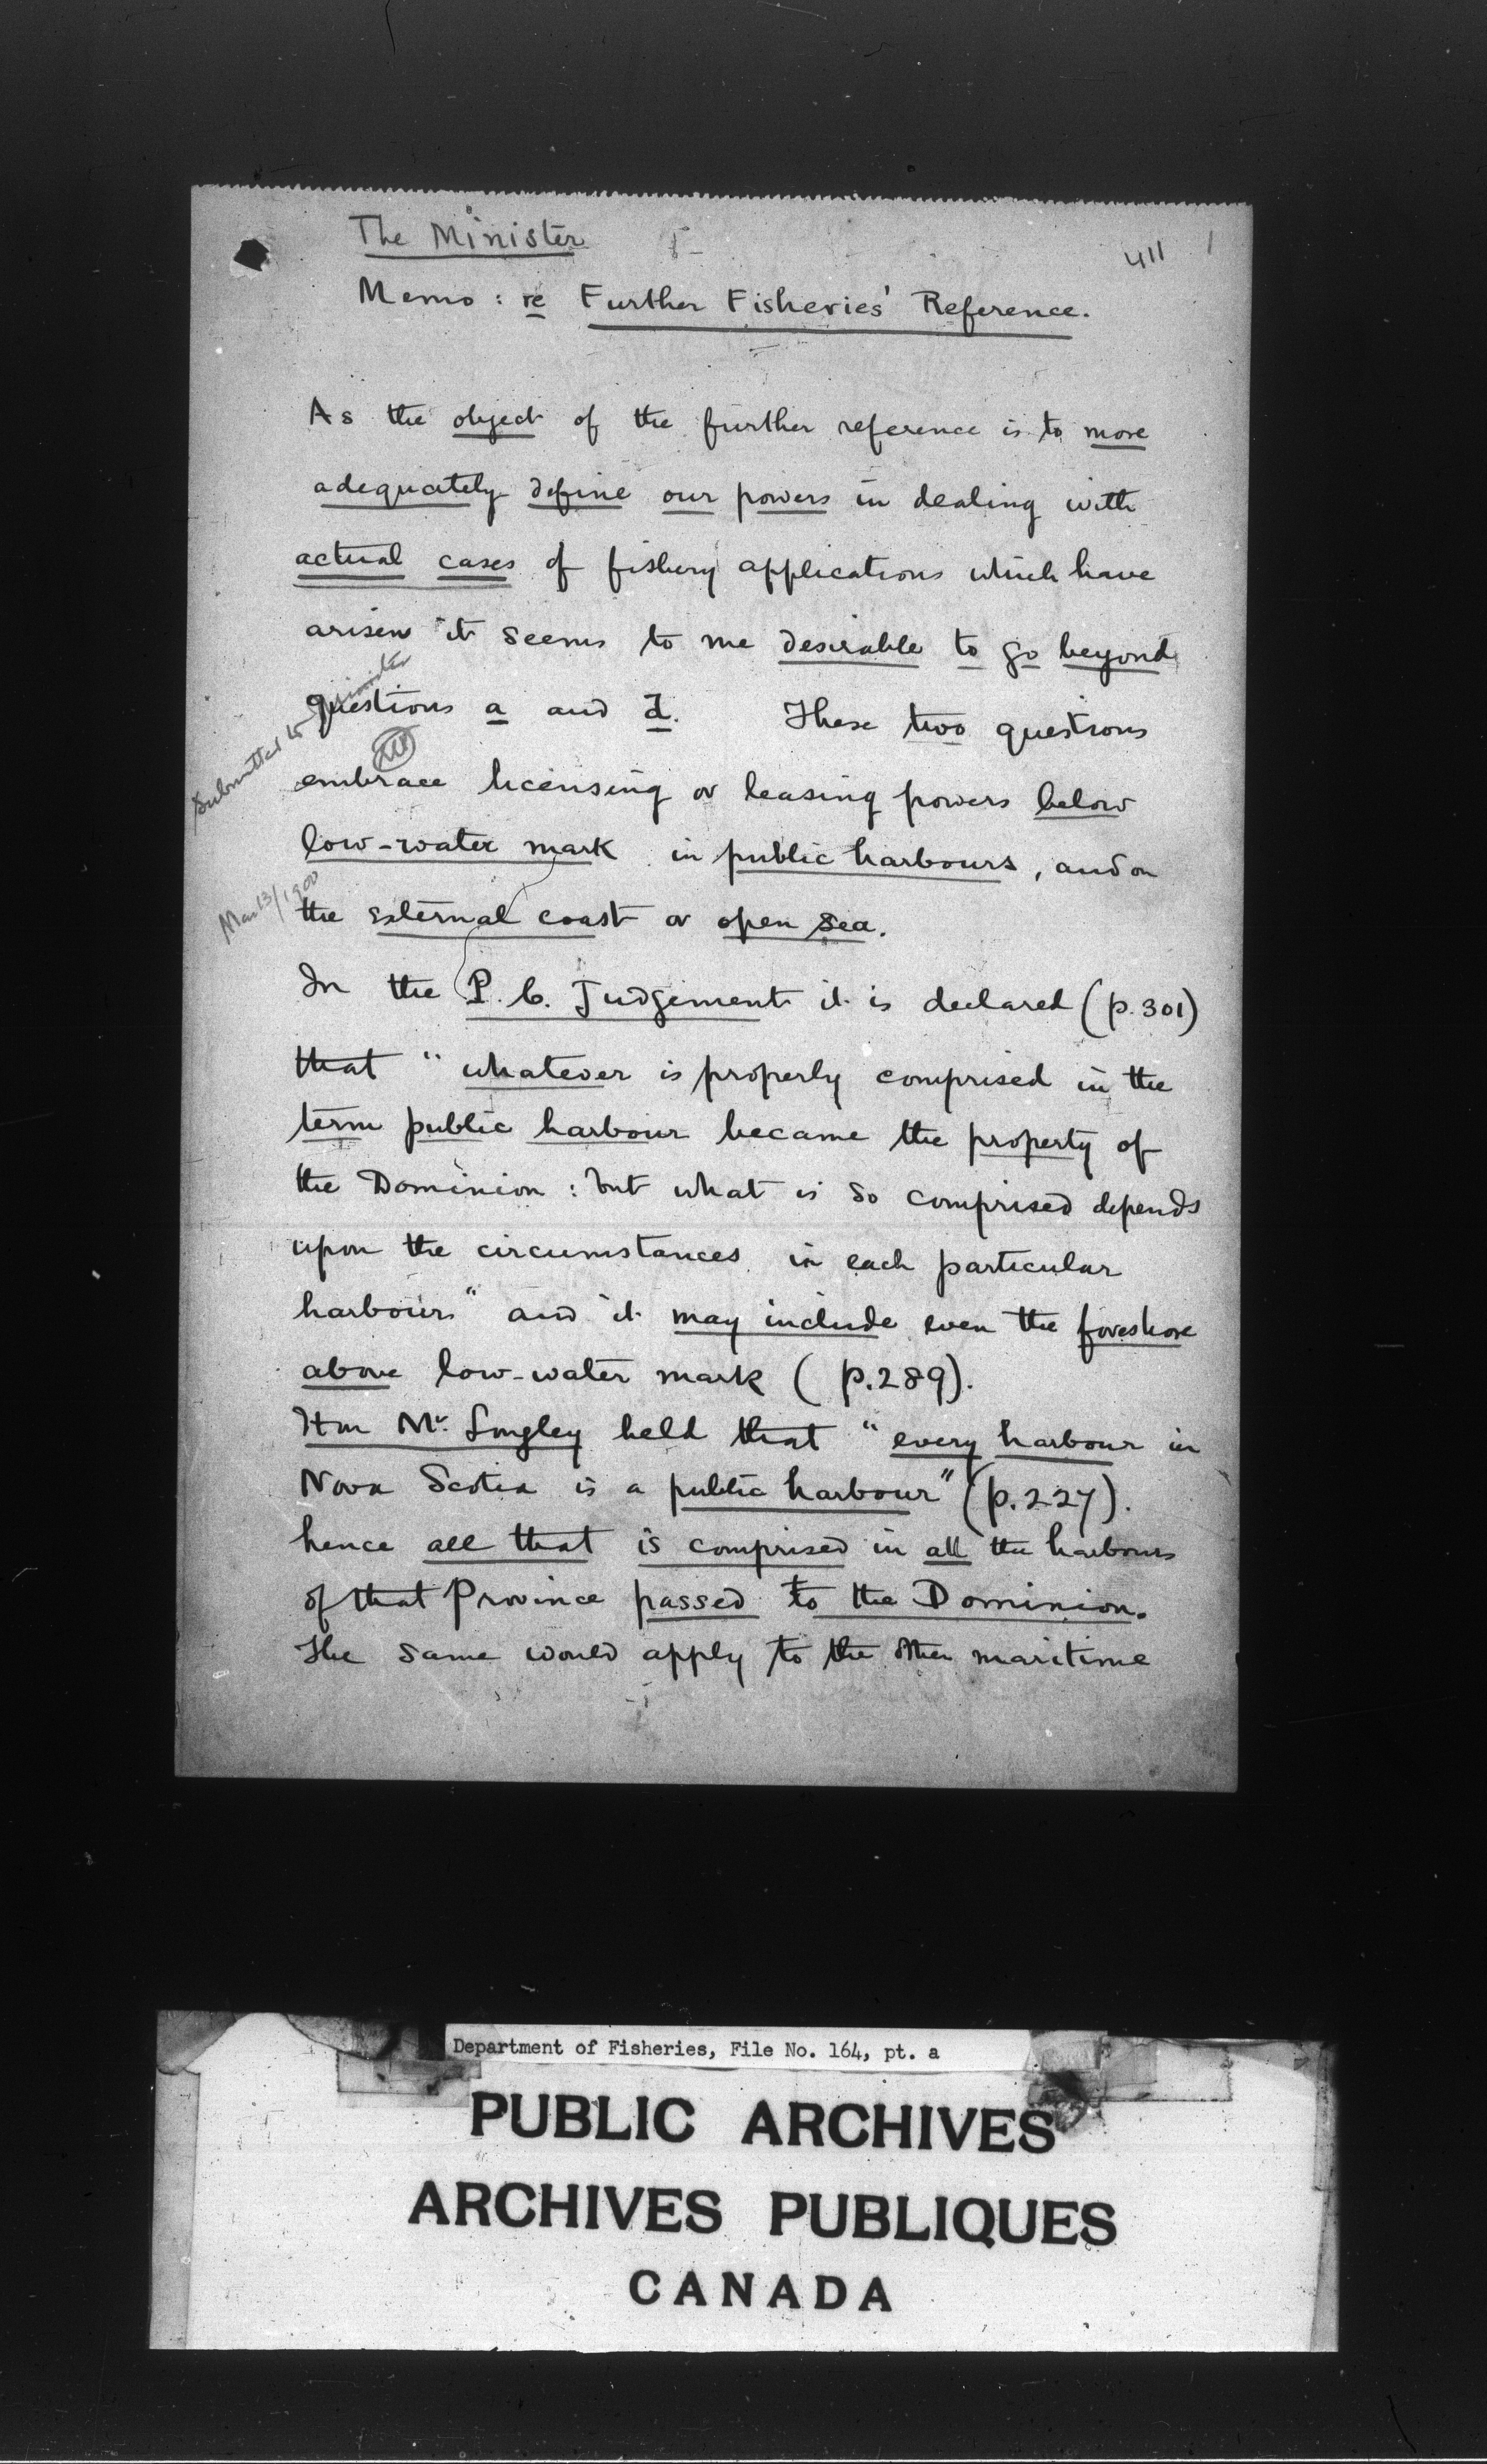 The Minister
411
1
Memo : re Further Fisheries' Reference.
As the object of the further reference is to more
adequately define our powers in dealing with
actual cases of fishery applications which have
arisen it seems to me desirable to go beyond
questions a and d. These two questions
embrace licensing or leasing powers below
low-water mark in public harbours, and on
the external coast or open sea.
Submitted to Minister
Mar 13/1900
In the P. C. Judgement it is declared (p. 301)
that "whatever is properly comprised in the
term public harbour became the property of
the Dominion : but what is so comprised depends
upon the circumstances in each particular
harbour" and it may include even the foreshore
above low-water mark ( p.289).
Hon Mr. Longley held that "every harbour in
Nova Scotia is a public harbour" (p.227).
hence all that is comprised in all the harbours
of that Province passed to the Dominion.
The same would apply to the other maritime
Department of Fisheries, File No. 164, pt. a
PUBLIC ARCHIVES
ARCHIVES PUBLIQUES
CANADA